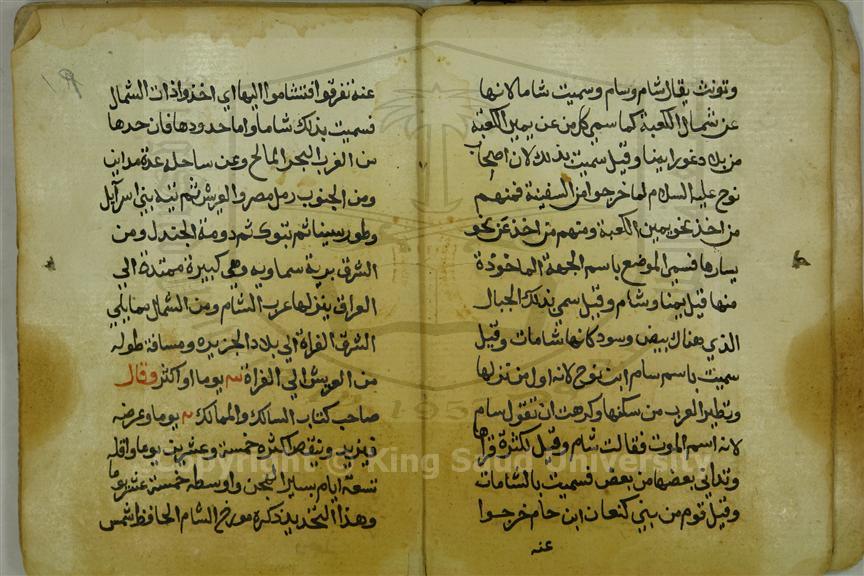 وتونث يقال شام وسام وسميت شاما لانها
عن شمال الكعبة كما سمي كل من عن يمين الكعبة
من بلاد غور ايمنا وقيل سميت بذلك لان اصحاب
نوح عليه السلام لما خرجوا من السفينة فمنهم
من اخذ نحو يمين الكعبة ومنهم من اخذ عن نحو
يسارها فسمي الموضع باسم الجهة الماخوذة
منها قيل يمنا وشام وقيل سمي بذلك الجبال
الذي هناك بيض وسود كانها شامات وقيل
سميت باسم سام ابن نوح لانه اول من نزلها
وتطير العرب من سكنها وكرهت ان تقول سام
لانه اسم الموت فقالت شام وقيل لكثرة قراها
وتداني بعضها من بعض فسميت بالشامات
وقيل قوم من بني كنعان ابن حام خرجوا
عنه
عنه تفرقوا فتشاموا اليها اي اخذوا ذات الشمال
فسميت بذلك شاما واما حدودها فان حدها
من الغرب البحر المالح وعن ساحله عدة مداين
ومن الجنوب رمل مصر والعريش ثم تيه بني اسرآيل
وطور سينا ثم تبوك ثم دومة الجندل ومن
الشرق برية سماويه وهي كبيرة ممتدة الي
العراق ينزلها عرب الشام ومن الشمال مما يلي
الشرق الفراة الي بلاد الجزيره ومسافة طوله
من العريش الي الفراة يوما او اكثر وقال
صاحب كتاب السالك والممالك يوما وعرضه
فيزيد وينقص اكثره خمسة وعشرين يوما واقله
تسعة ايام بسير واوسطه خمسة عشر يوما
وهذا التحديد ذكره مورخ الشام الحافظ شمس
Copyright © King Saud University
1957